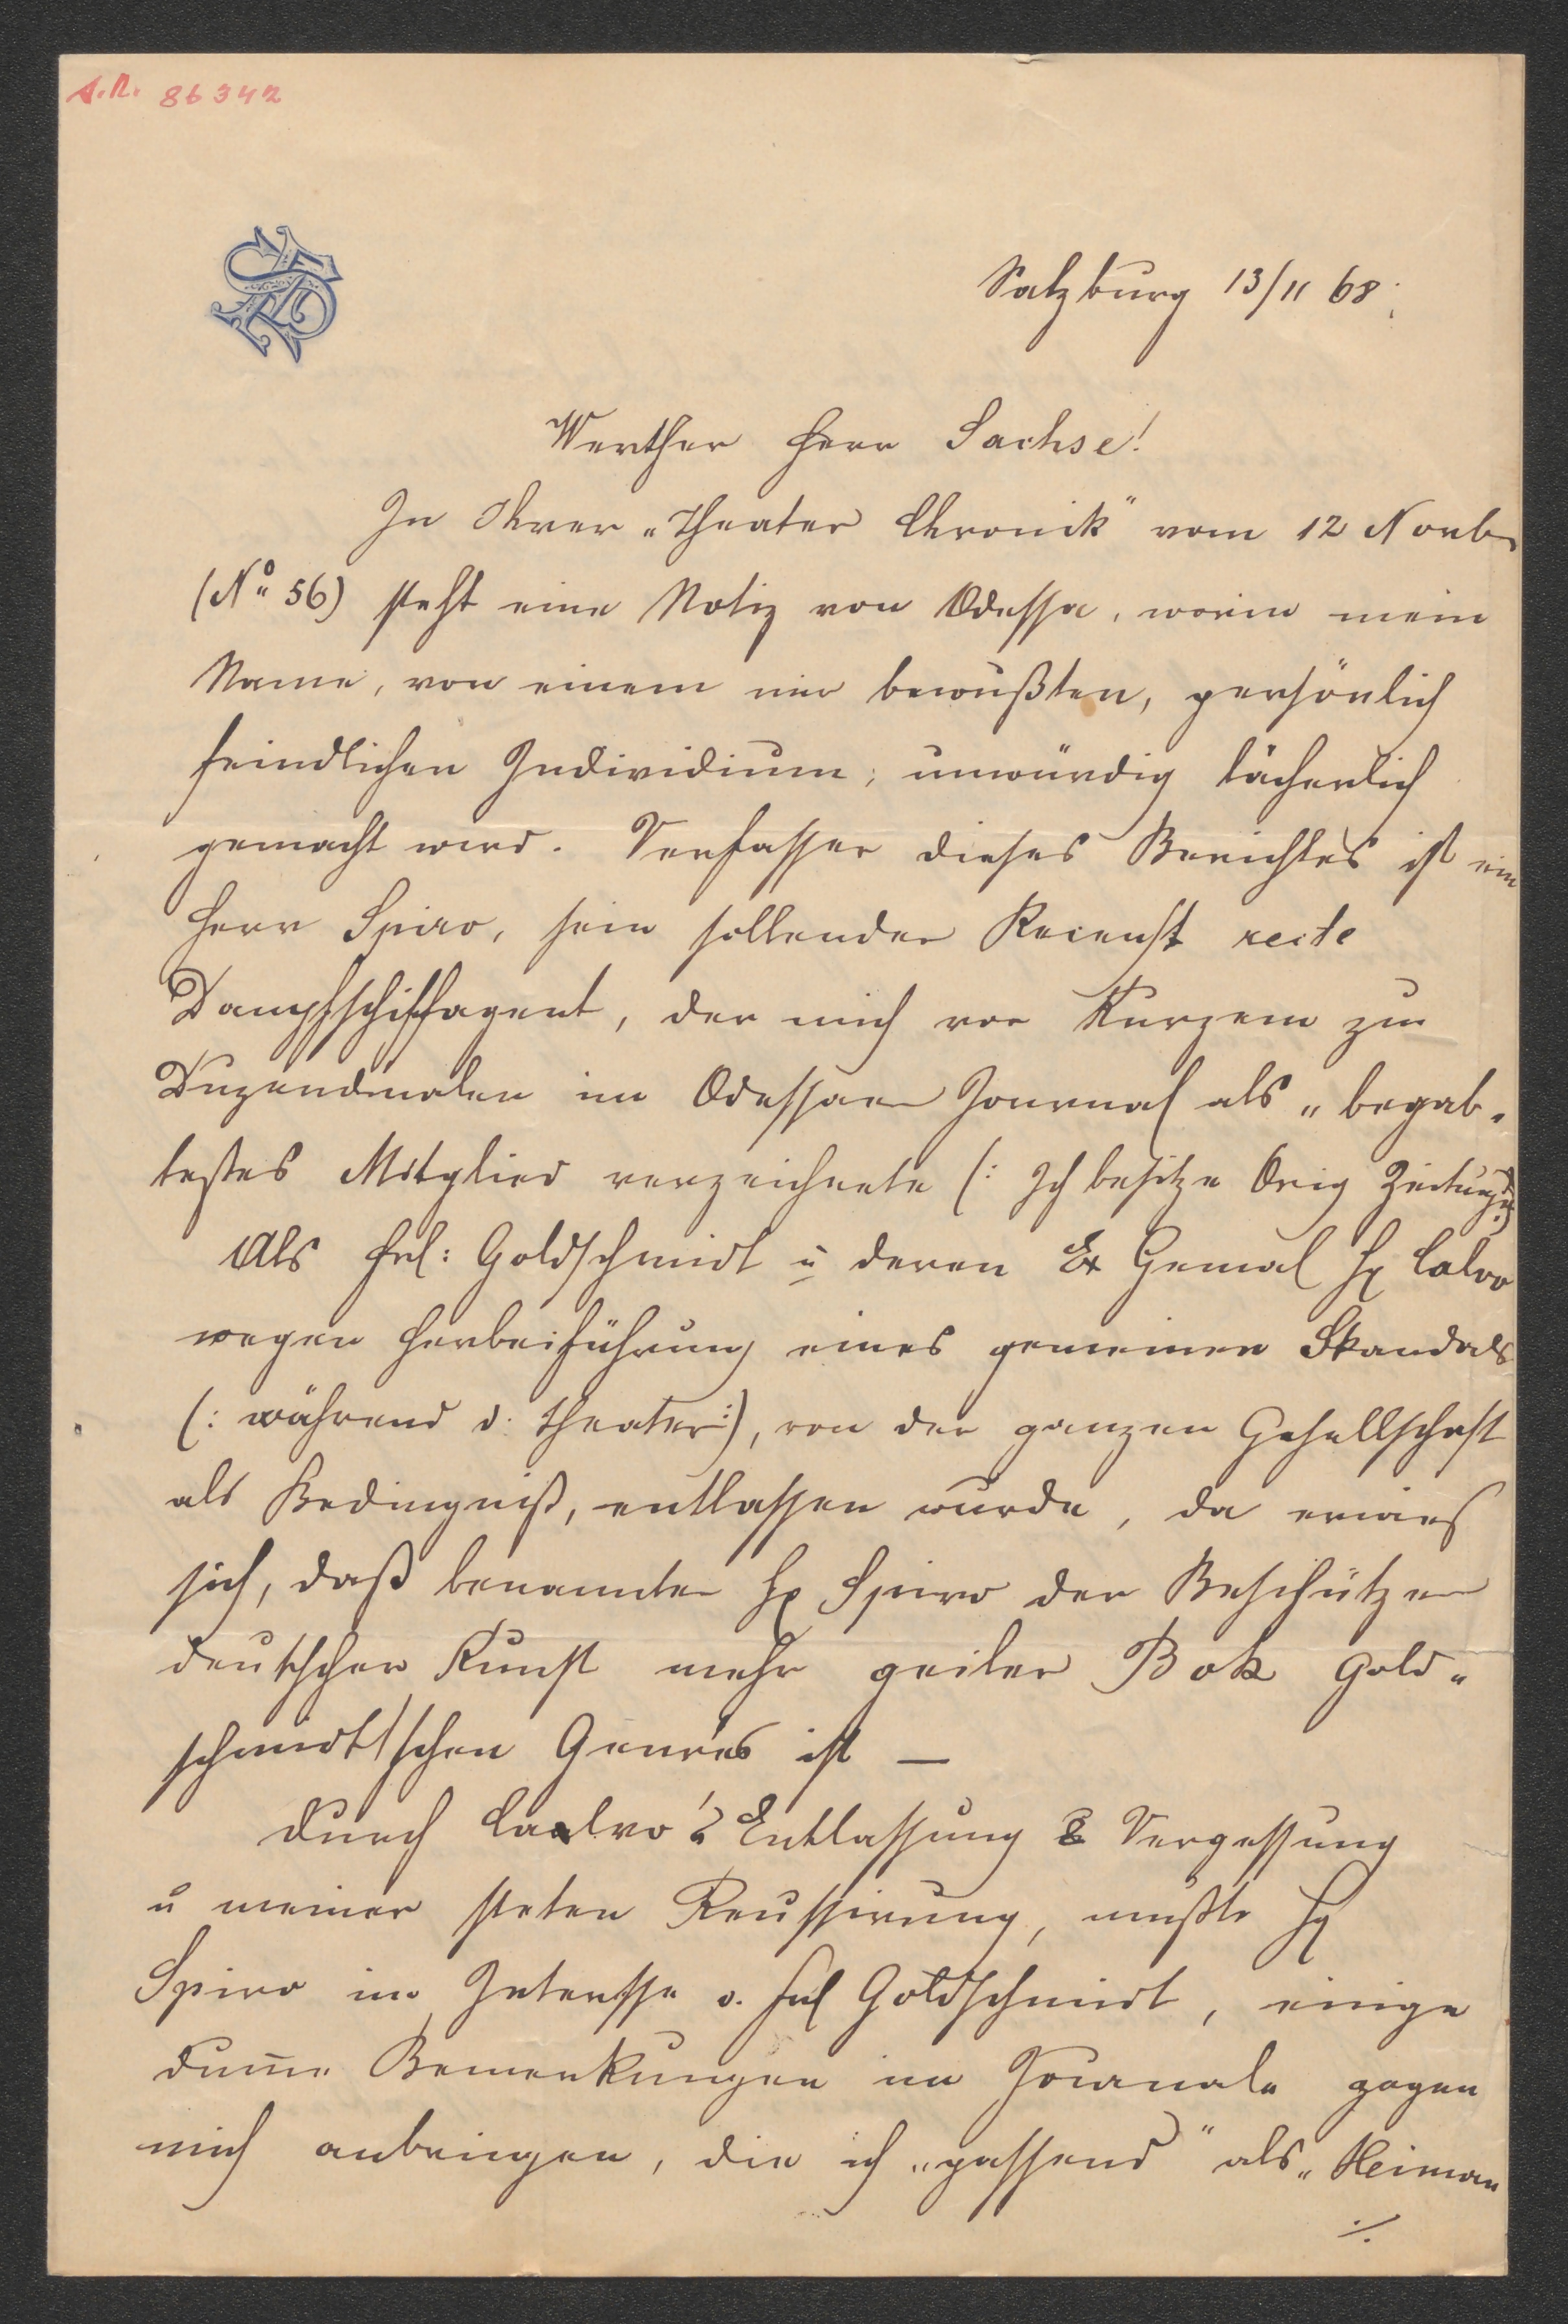 A.N. 86342
Salzburg 13/11 68.
Werther Herr Sachse!
In Ihrer „Theater Chronik" vom 12 Novb
(No 56) steht eine Notiz von Odessa, worin mein
Name, von einem mir bewußten, persönlich
feindlichen Individium, unwürdig lächerlich
gemacht wird. Verfasser dieses Berichtes ist ein
Herr Spiro, sein sollender Recenst recte
Dampfschiffagent, der mich vor Kurzem zu
Duzendmalen im Odessaer Journal als „begab-
testes Mitglied verzeichnete (: Ich besitze Orig Zeitungen :)
Als Frl: Goldschmidt u deren Ex Gemal Hr Calvo
wegen Herbeiführung eines gemeinen Skandals
(: während d. Theater :), von der ganzen Gesellschaft
als Bedingniß, entlassen wurde, da erwies
sich, daß benannter Hr Spiro der Beschützer
deutscher Kunst mehr geiler Bok Gold-
schmidt'schen Genres ist —
Durch Calvo's Entlassung & Vergessung
u meiner steten Reussirung, mußte Hr
Spiro im Interesse d. Frl Goldschmidt, einige
dum̄e Bemerkungen im Journale gegen
mich anbringen, die ich „passend" als „Heiman
./.